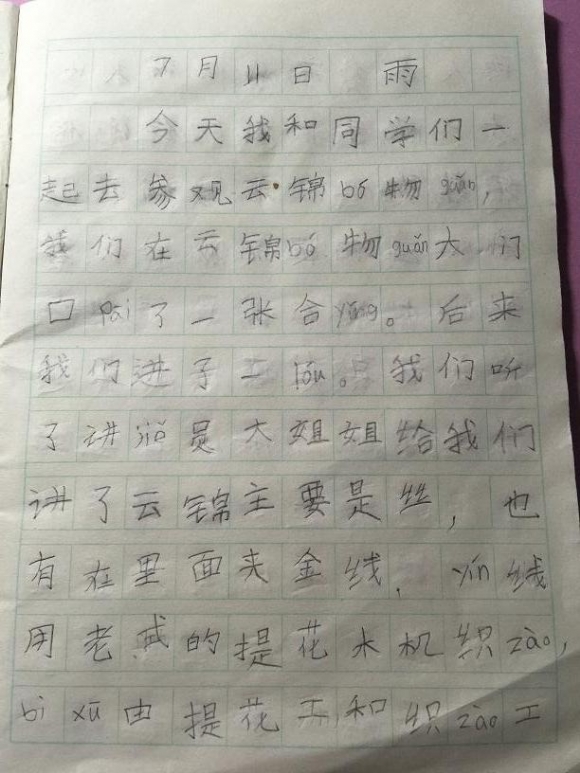 7月11日 雨
今天我和同学们一
起去参观云锦bó物guǎn,
我们在云锦bó物guǎn大门
口pāi了一张合yǐng。后来
我们进了二lóu。我们听
了讲jiě员大姐姐给我们
讲了云锦主要是丝,也
有在里面夹金线,yín线
用老式的提花木机织zào,
bì xū由提花工和织zào工